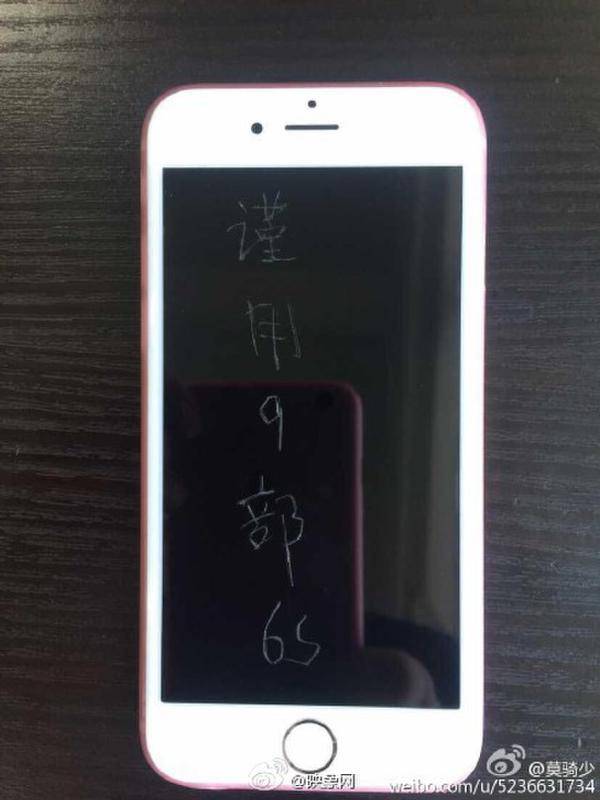 谨
用
9
部
6S
@映象网
@莫骑少
weibo.com/u/5236631734